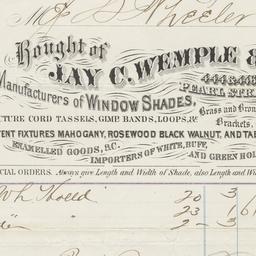 Mr S. Wheeler
Bought of
JAY C. WEMPLE &
444 & 4
PEARL STR
Manufacturers of WINDOW SHADES,
Brass and Bron
TURE CORD TASSELS, GIMP BANDS, LOOPS, &c
Brackets,
TENT FIXTURES MAHOGANY, ROSEWOOD BLACK WALNUT, AND TAB
ENAMELLED GOODS, &C.
IMPORTERS OF WHITE, BUFF,
AND GREEN HOL
CIAL ORDERS. Always give Length and Width of Shade, also Length and Wi
20 3
23 1 6
2 - 3